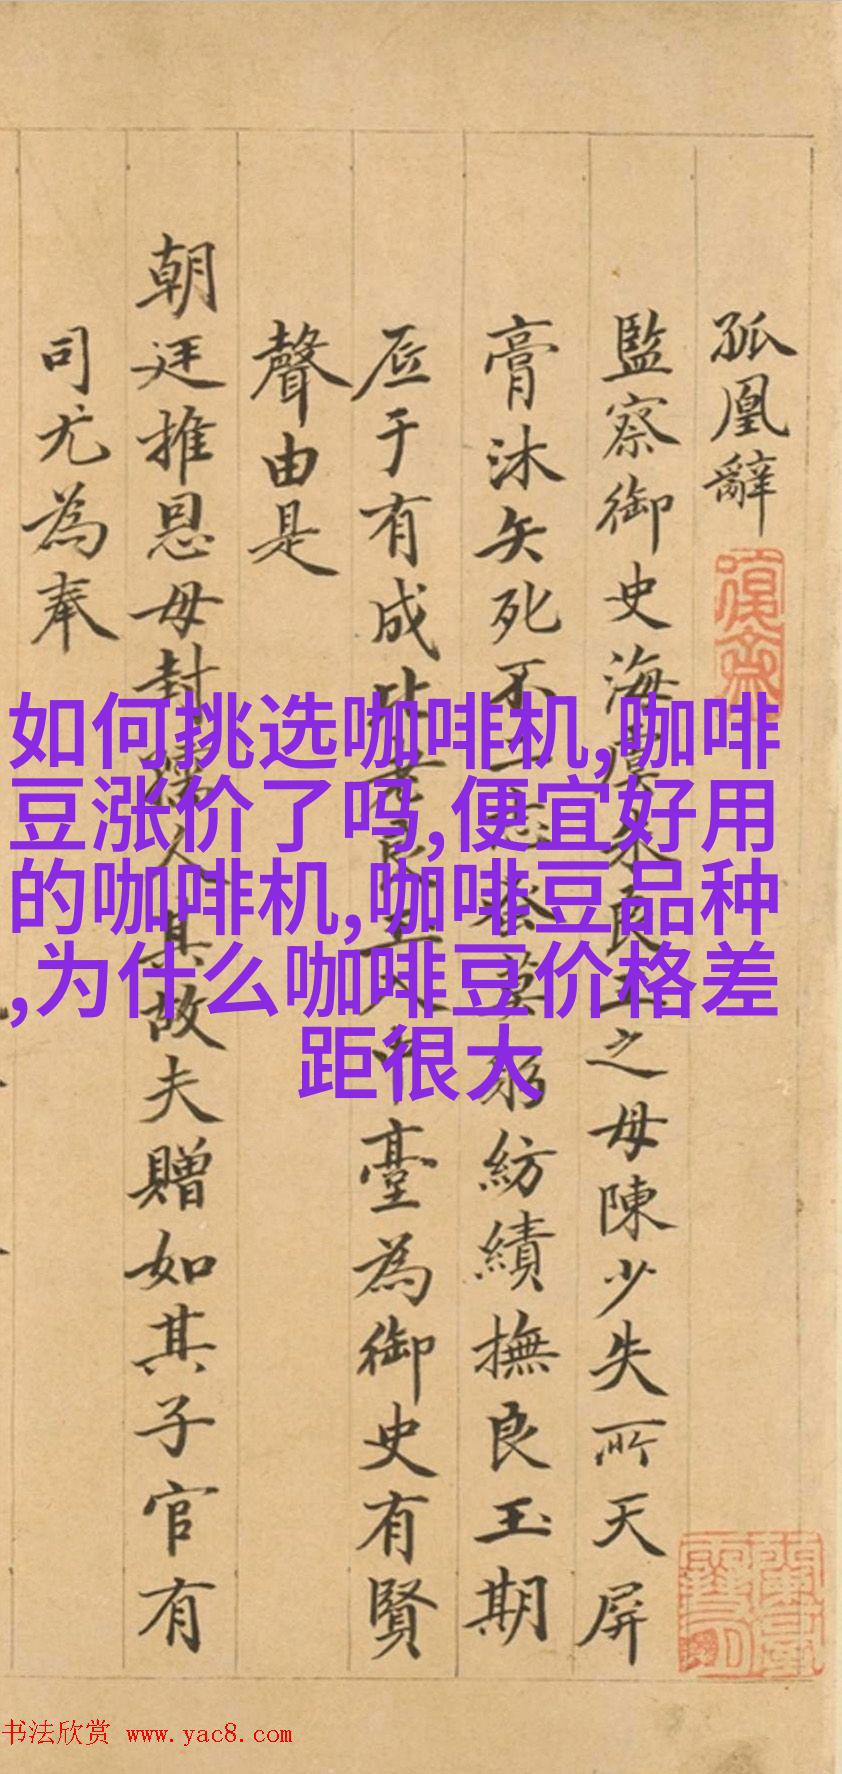 孤凰辭
監察御史海虞朱良玉之母陳少失所天屏
膏沐矢死不二志茶蓼躬紡績撫良玉期
底于有成比老良玉入中臺為御史有賢
聲由是
朝廷推恩母封孺人其故夫贈如其子官有
司尤為奉
如何挑选咖啡机,咖啡
豆涨价了吗,便宜好用
的咖啡机,咖啡豆品种
,为什么咖啡豆价格差
距很大
书法欣赏 www.yac8.com